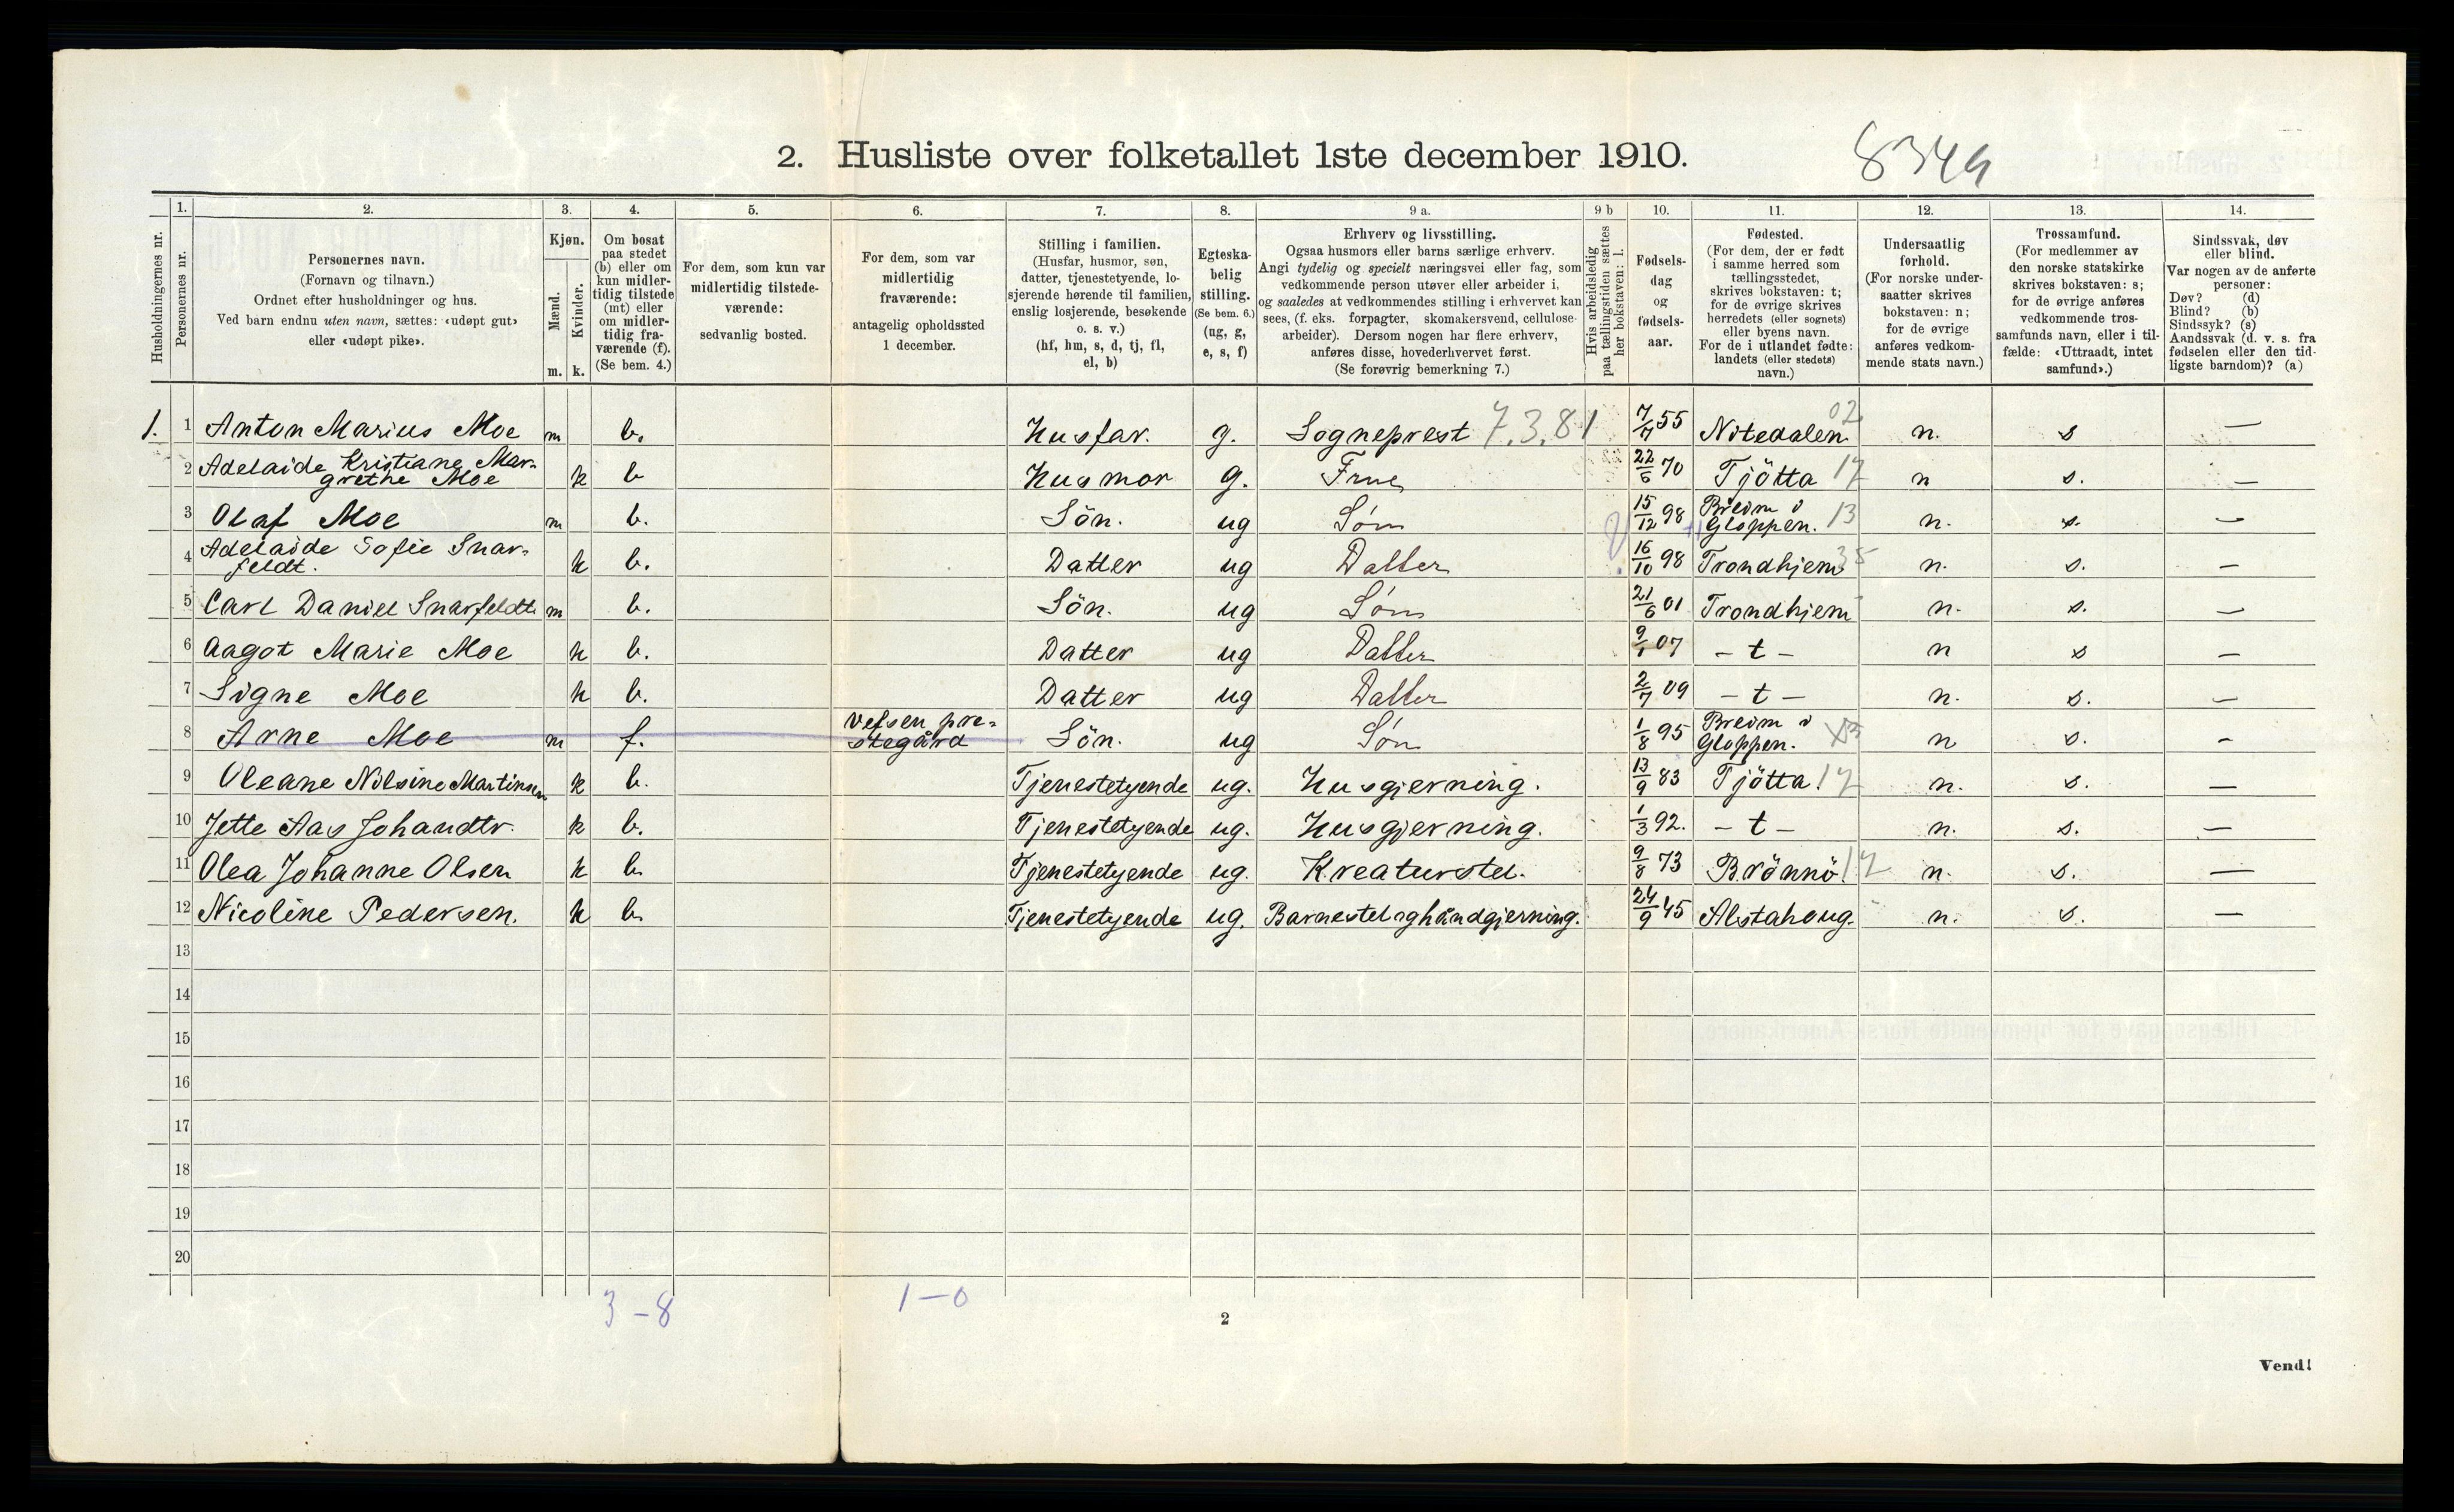 2. Husliste over folketallet 1ste december 1910.
8349
Husholdningernes nr.
1.
Personernes nr.
2.
Personernes navn.
(Fornavn og tilnavn.)
Ordnet efter husholdninger og hus.
Ved barn endnu uten navn, sættes: «udøpt gut»
eller «udøpt pike».
3.
Kjøn.
Mænd.
Kvinder.
m. k.
4.
Om bosat
paa stedet
(b) eller om
kun midler-
tidig tilstede
(mt) eller
om midler-
tidig fra-
værende (f).
(Se bem. 4.)
5.
For dem, som kun var
midlertidig tilstede-
værende:
sedvanlig bosted.
6.
For dem, som var
midlertidig
fraværende:
antagelig opholdssted
1 december.
7.
Stilling i familien.
(Husfar, husmor, søn,
datter, tjenestetyende, lo-
sjerende hørende til familien,
enslig losjerende, besøkende
o. s. v.)
(hf, hm, s, d, tj, fl,
el, b)
8.
Egteska-
belig
stilling.
(Se bem. 6.)
(ug, g,
e, s, f)
9 a.
Erhverv og livsstilling.
Ogsaa husmors eller barns særlige erhverv.
Angi tydelig og specielt næringsvei eller fag, som
vedkommende person utøver eller arbeider i,
og saaledes at vedkommendes stilling i erhvervet kan
sees, (f. eks. forpagter, skomakersvend, cellulose-
arbeider). Dersom nogen har flere erhverv,
anføres disse, hovederhvervet først.
(Se forøvrig bemerkning 7.)
9 b
Hvis arbeidsledig
paa tællingstiden sættes
her bokstaven: l.
10.
Fødsels-
dag
og
fødsels-
aar.
11.
Fødested.
(For dem, der er født
i samme herred som
tællingsstedet,
skrives bokstaven: t;
for de øvrige skrives
herredets (eller sognets)
eller byens navn.
For de i utlandet fødte:
landets (eller stedets)
navn.)
12.
Undersaatlig
forhold.
(For norske under-
saatter skrives
bokstaven: n;
for de øvrige
anføres vedkom-
mende stats navn.)
13.
Trossamfund.
(For medlemmer av
den norske statskirke
skrives bokstaven: s;
for de øvrige anføres
vedkommende tros-
samfunds navn, eller i til-
fælde: «Uttraadt, intet
samfund».)
14.
Sindssvak, døv
eller blind.
Var nogen av de anførte
personer:
Døv? (d)
Blind? (b)
Sindssyk? (s)
Aandssvak (d. v. s. fra
fødselen eller den tid-
ligste barndom)? (a)
1. 1 Anton Marius Moe m b. Husfar. g. Sogneprest 7.3.81 7/7 55 Nitedalen 02 n. s —
2 Adelaide Kristiane Mar-
grethe Moe k b Husmor g. Frue 22/6 70 Tjötta 17 n s. —
3 Olaf Moe m b. Sön. ug Søn 15/12 98 Breim i
Gloppen. 13 n. s. —
4 Adelaide Sofie Snar-
feldt. k b. Datter ug Datter 16/10 98 Trondhjem 35 n. s. —
5 Carl Daniel Snarfeldt m b. Sön. ug Søn 21/6 01 Trondhjem n. s. —
6 Aagot Marie Moe k b. Datter ug Datter 9/1 07 - t - n s —
7 Signe Moe k b. Datter ug Datter 2/7 09 - t - n. s. —
8 Arne Moe m f. Vefsen pre-
stegård Sön. ug Søn 1/8 95 Breim i
Gloppen. n s. -
9 Oleane Nilsine Martinsen k b. Tjenestetyende ug. Husgjerning. 13/9 83 Tjötta 17 n. s. —
10 Jette Aas Johandtr. k b. Tjenestetyende ug. Husgjerning. 1/3 92. - t - n. s. —
11 Olea Johanne Olsen k b. Tjenestetyende ug. Kreaturstel. 9/8 73 Brönnö. 17 n. s. —
12 Nicoline Pedersen. k b. Tjenestetyende ug. Barnestel og håndgjerning. 24/9 45 Alstahoug. n. s. —
13
14
15
16
17
18
19
20
3-8
1-0
2
Vend!